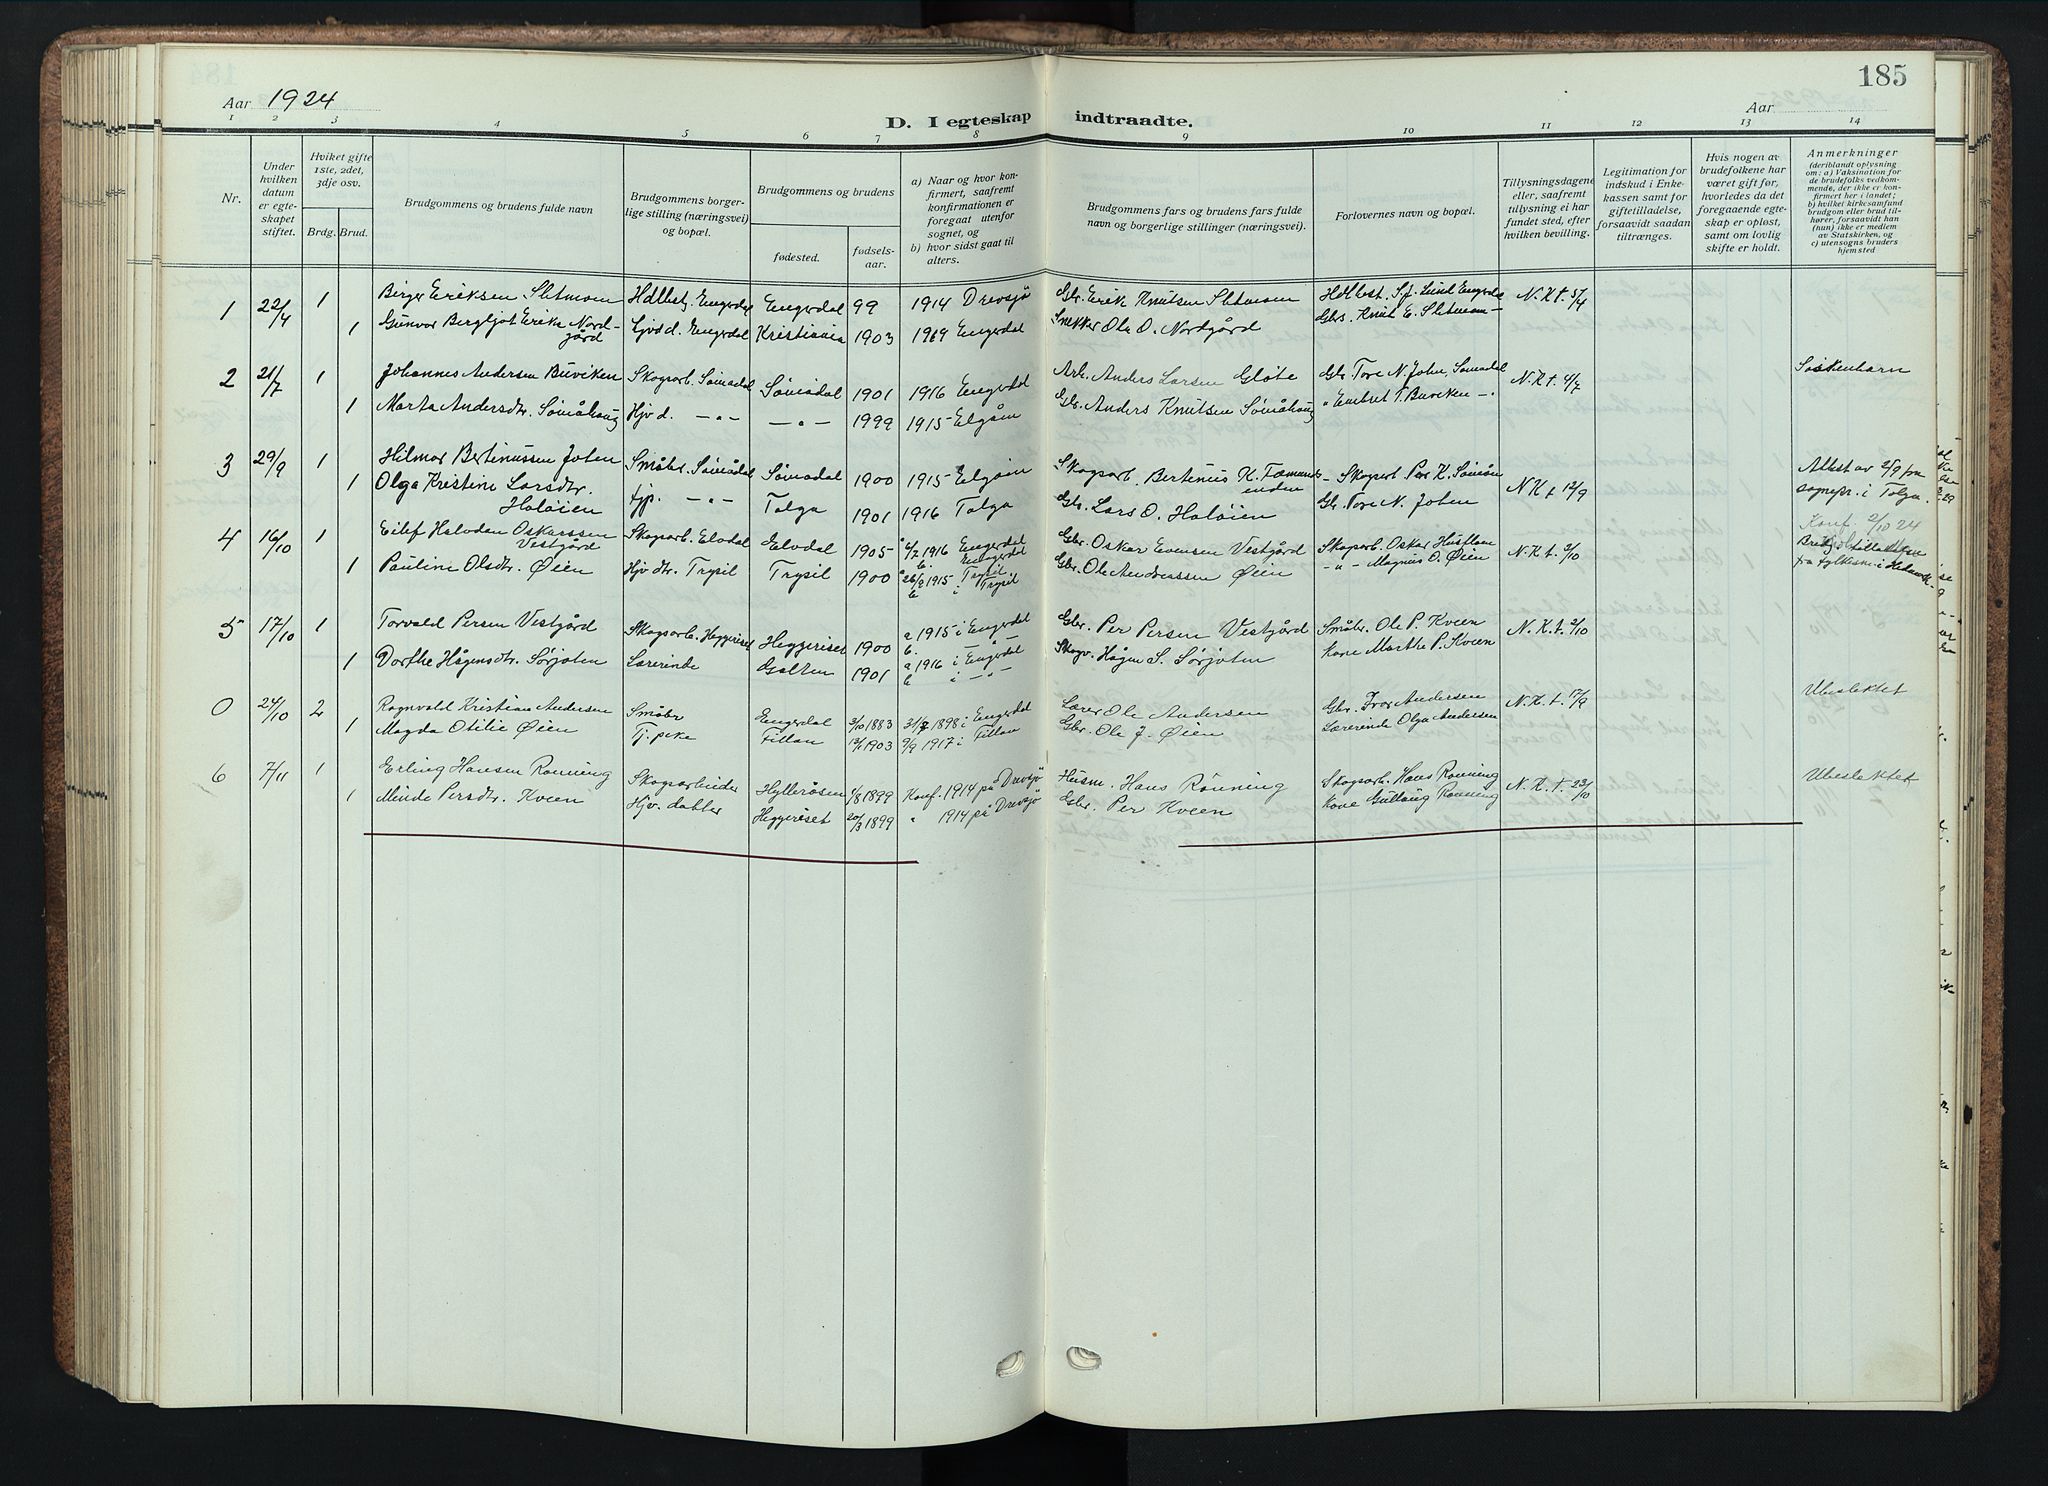 185
Aar 1924
Aar
D. I egteskap indtraadte.
1 2 3 4 5 6 7 8 9 10 11 12 13 14
Nr.
Under hvilken datum er egteskapet stiftet.
Hviket gifte 1ste, 2det, 3dje osv.
Brdg. Brud.
Brudgommens og brudens fulde navn
Brudgommens borgerlige stilling (næringsvei) og bopæl.
Brudgommens og brudens
fødested.
fødselsaar.
a) Naar og hvor konfirmert, saafremt konfirmationen er foregaat utenfor sognet, og
b) hvor sidst gaat til alters.
Brudgommens fars og brudens fars fulde navn og borgerlige stillinger (næringsvei).
Forlovernes navn og bopæl.
Tillysningsdagene eller, saafremt tillysning ei har fundet sted, efter hvilken bevilling.
Legitimation for indskud i Enkekassen samt for giftetilladelse, forsaavidt saadan tiltrænges.
Hvis nogen av brudefolkene har været gift før, hvorledes da det foregaaende egteskap er opløst, samt om lovlig skifte er holdt.
Anmerkninger
(deriblandt oplysning om: a) Vaksination for de brudefolks vedkommende, der ikke er konfirmert her i landet; b) hvilket kirkesamfund brudgom eller brud tilhører, forsaavidt han (hun) ikke er medlem av Statskirken, og c) utensogns bruders hjemsted
1 22/4 1 Birger Eriksen Sletmoen Hdlbst. Engerdal Engerdal 99 1914 Drevsjø Gbr. Erik Knutsen Sletmoen Hdlbst. S. J. Lund Engerdal N. K. t.
1 Gunvor Bergljot Erika Nordgård Hjvd d. Engerdal Kristiania 1903 1919 Engerdal Snekker Ole O. Nordgård Gbrs. Knut E. Sletmoen
2 21/7 1 Johannes Andersen Buviken Skogsarb. Sømådal Sømådal 1901 1916 Engerdal Arb. Anders Larsen Gløte Gbr. Tore N. Joten, Sømådal N. K. t. 4/7 Søskenbarn
1 Marta Andersdtr. Sømåhaug Hjv d. -"- -"- 1999 1915 Elgåen Gbr. Anders Knutsen Sømåhaug " Embret T. Buviken -"-
3 29/9 1 Hilmar Bertinussen Joten Småbr. Sømådal Sømådal 1900 1915 Elgåen Skogsarb. Bertinus K. Femundsenden Skogsarb Per K. Sømåen N K t 12/9 Attest av 2/9 fra sognepr. i Tolga.
1 Olga Kristine Larsdtr. Holøien tjp. -"- Tolga 1901 1916 Tolga Gbr. Lars O. Holøien Gbr. Tore N. Joten
4 16/10 1 Eilef Halvdan Oskarssen Vestgård Skogsarb. Elvdal Elvdal 1905 a 1916 Engerdal b. Engerdal Gbr. Oskar Evensen Vestgård Skogsarb. Oskar Hustloen N. K. t. 2/10 Konf. 2/10 24
1 Pauline Olsdtr. Øien Hjv dtr. Trysil Trysil 1900 a 1915 i Trysil b i Trysil Gbr. Ole Andreassen Øien -"- Magnus O. Øien fra fylkesm. i Hedmark
5 17/10 1 Torvald Persen Vestgård Skogsarb. Heggeriset Heggeriset 1900 a 1915 i Engerdal b. -"- Gbr. Per Persen Vestgård Småbr. Ole P. Kveen N. K. t. 2/10
1 Dorthe Hågensdtr. Sørjoten Lærerinde Galten 1901 a 1916 i Engerdal b i -"- Skogv. Hågen S. Sørjoten Kone Marthe P. Kveen
0 24/10 2 Ragnvald Kristian Andersen Småbr Engerdal 3/10 1883 1898 i Engerdal Lærer Ole Andersen Gbr. Ivar Andersen N. K. t. 17/9 Ubeslektet
1 Magda Otilie Øien Tj. pike Fillan 13/1 1903 9/9 1917 i Fillan Gbr. Ole J. Øien Lærerinde Olga Andersen
6 7/11 1 Erling Hansen Rønning Skogsarbeider Hylleråsen 1/8 1899 Konf. 1914 på Drevsjø Husm. Hans Rønning Skogsarb. Hans Rønning N. K. T. 23/10 Ubeslektet
1 Minda Persdtr. Kveen Hjv. datter Heggeriset 20/3 1899 " 1914 på Drevsjø Gbr. Per Kveen Kone Gullaug Rønning